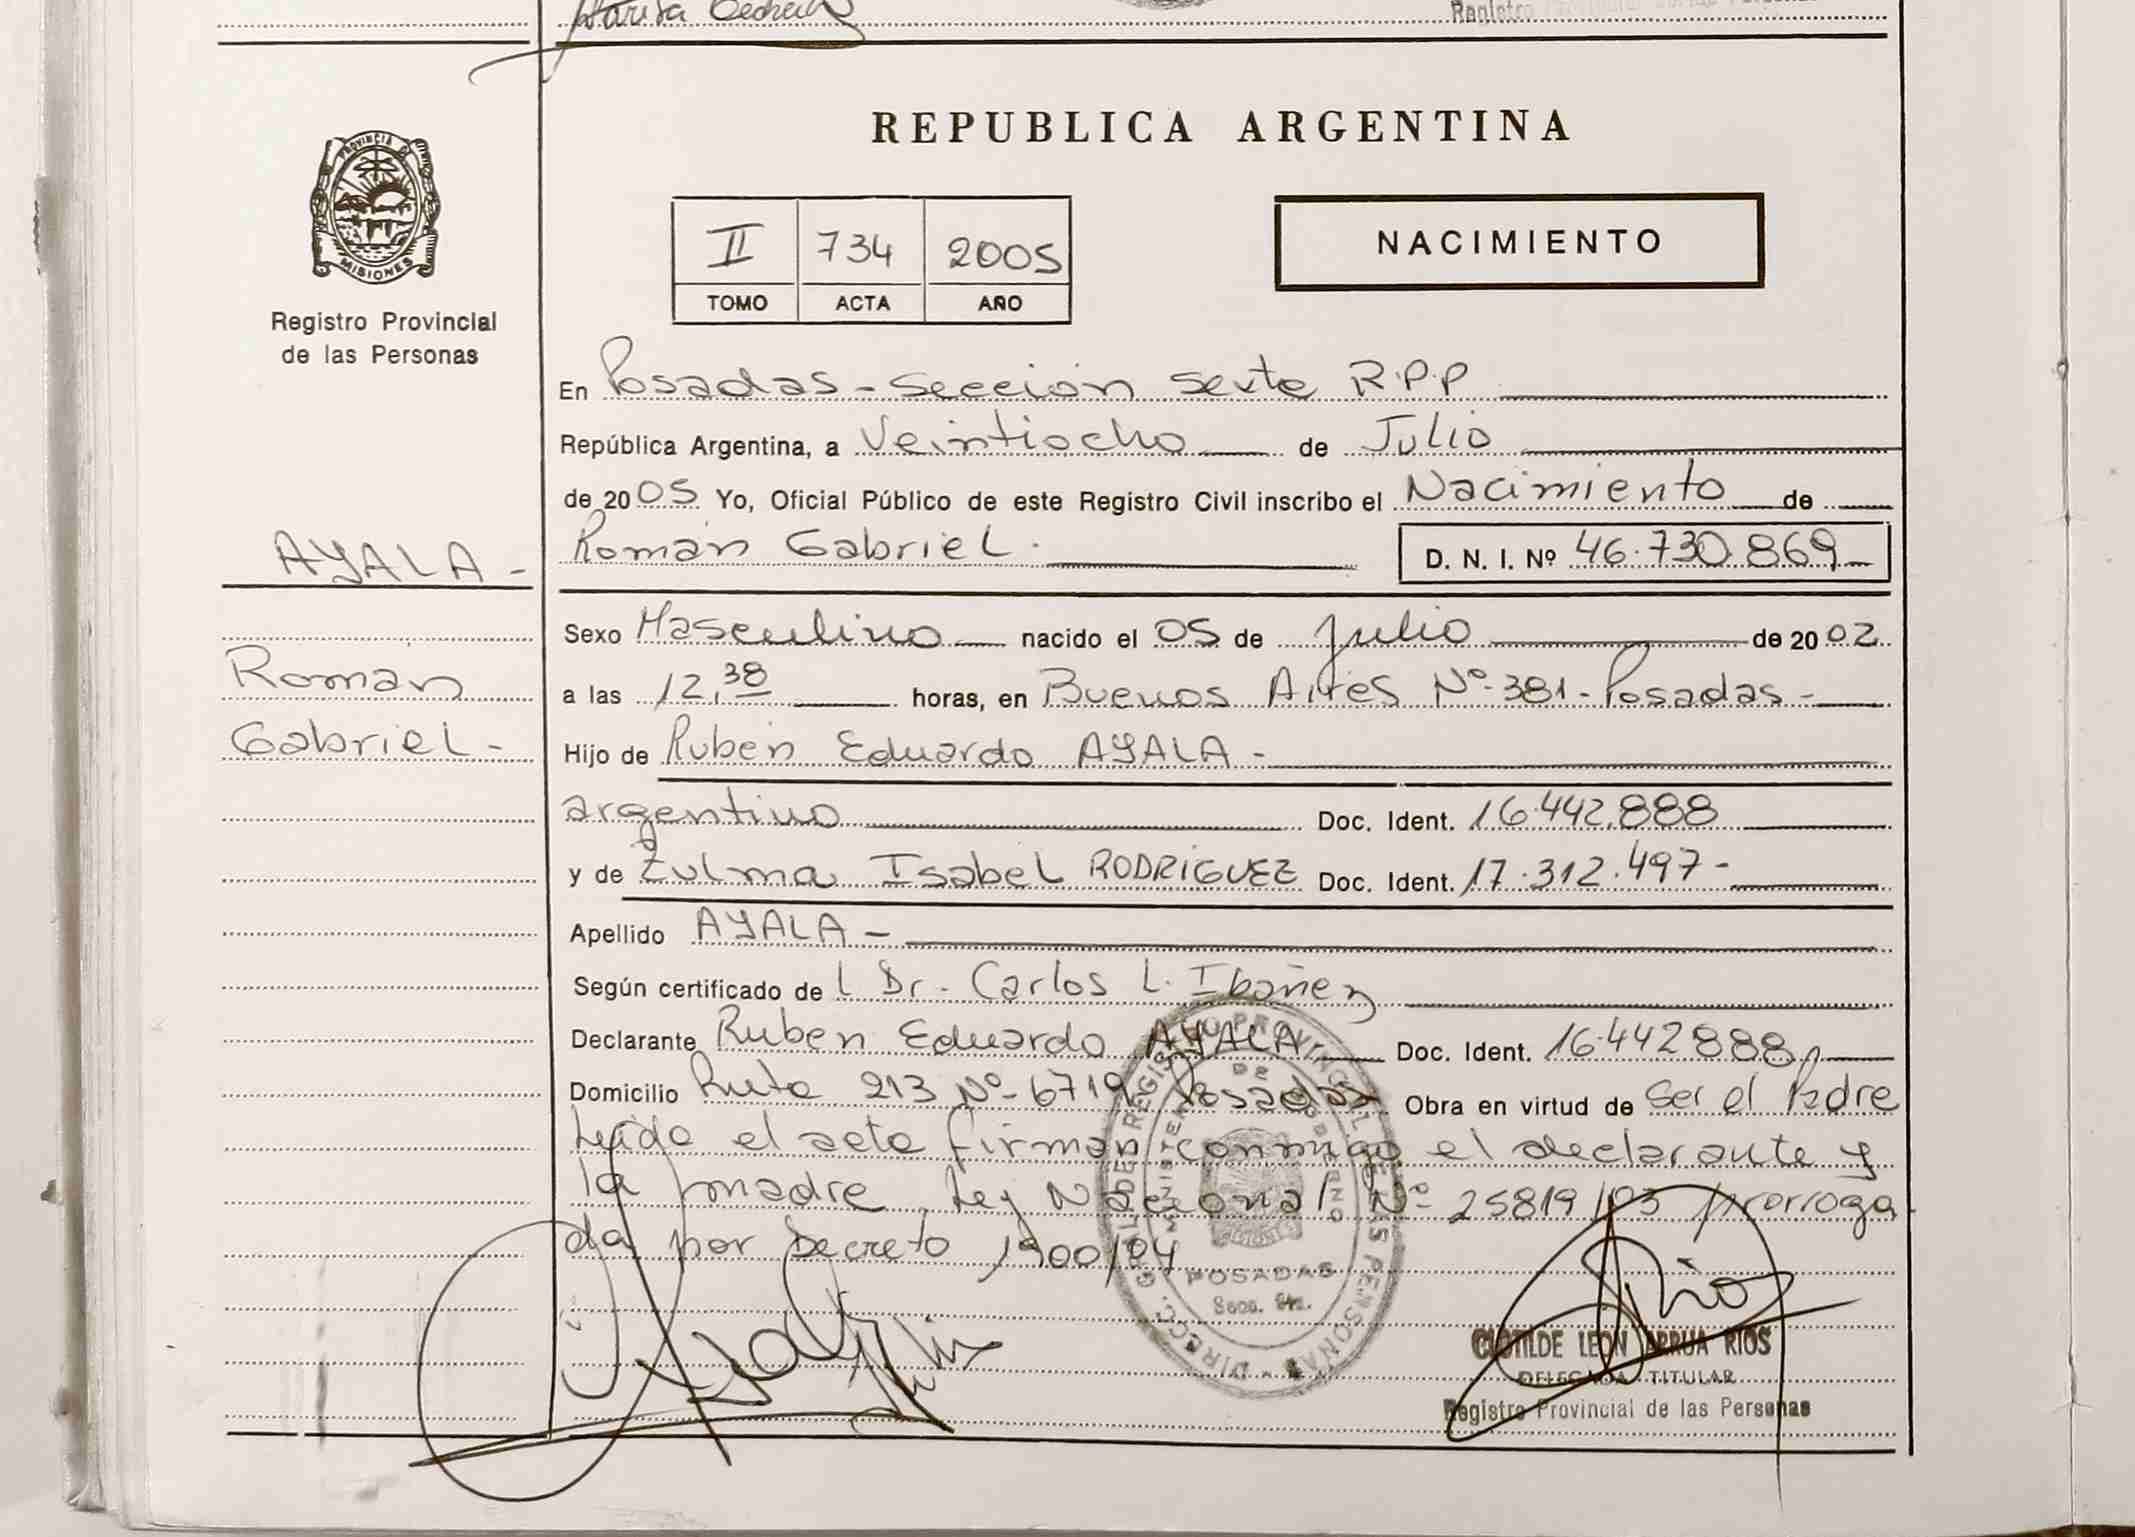 REPUBLICA ARGENTINA
PROVINCIA DE MISIONES
Registro Provincial
de las Personas
II 734 2005
TOMO ACTA AÑO
NACIMIENTO
En Posadas - Sección Sexta R.P.P
República Argentina, a Veintiocho de Julio
de 2005 Yo, Oficial Público de este Registro Civil inscribo el Nacimiento de
AYALA -
Román Gabriel. D. N. I. Nº 46.730.869
Sexo Masculino nacido el 05 de Julio de 2002
Roman
a las 12,38 horas, en Buenos Aires Nº 381 - Posadas -
Gabriel -
Hijo de Ruben Eduardo AYALA -
argentino Doc. Ident. 16.442.888
y de Zulma Isabel RODRIGUEZ Doc. Ident. 17.312.497 -
Apellido AYALA -
Según certificado de l Dr. Carlos L. Ibañez
Declarante Ruben Eduardo AYALA Doc. Ident. 16.442888
Domicilio Ruta 213 Nº 6719 Posadas Obra en virtud de Ser el Padre
Leido el acta firman conmigo el declarante y
la madre. Ley Nacional Nº 25819/03 prorroga
da por Decreto 1900/04
DIRECC. GRAL DEL REGISTRO PROVINCIAL DE LAS PERSONAS
MINISTERIO DE GOBIERNO
POSADAS
Secc. 6ta.
CLOTILDE LEON ARRUA RIOS
DELEGADA TITULAR
Registro Provincial de las Personas